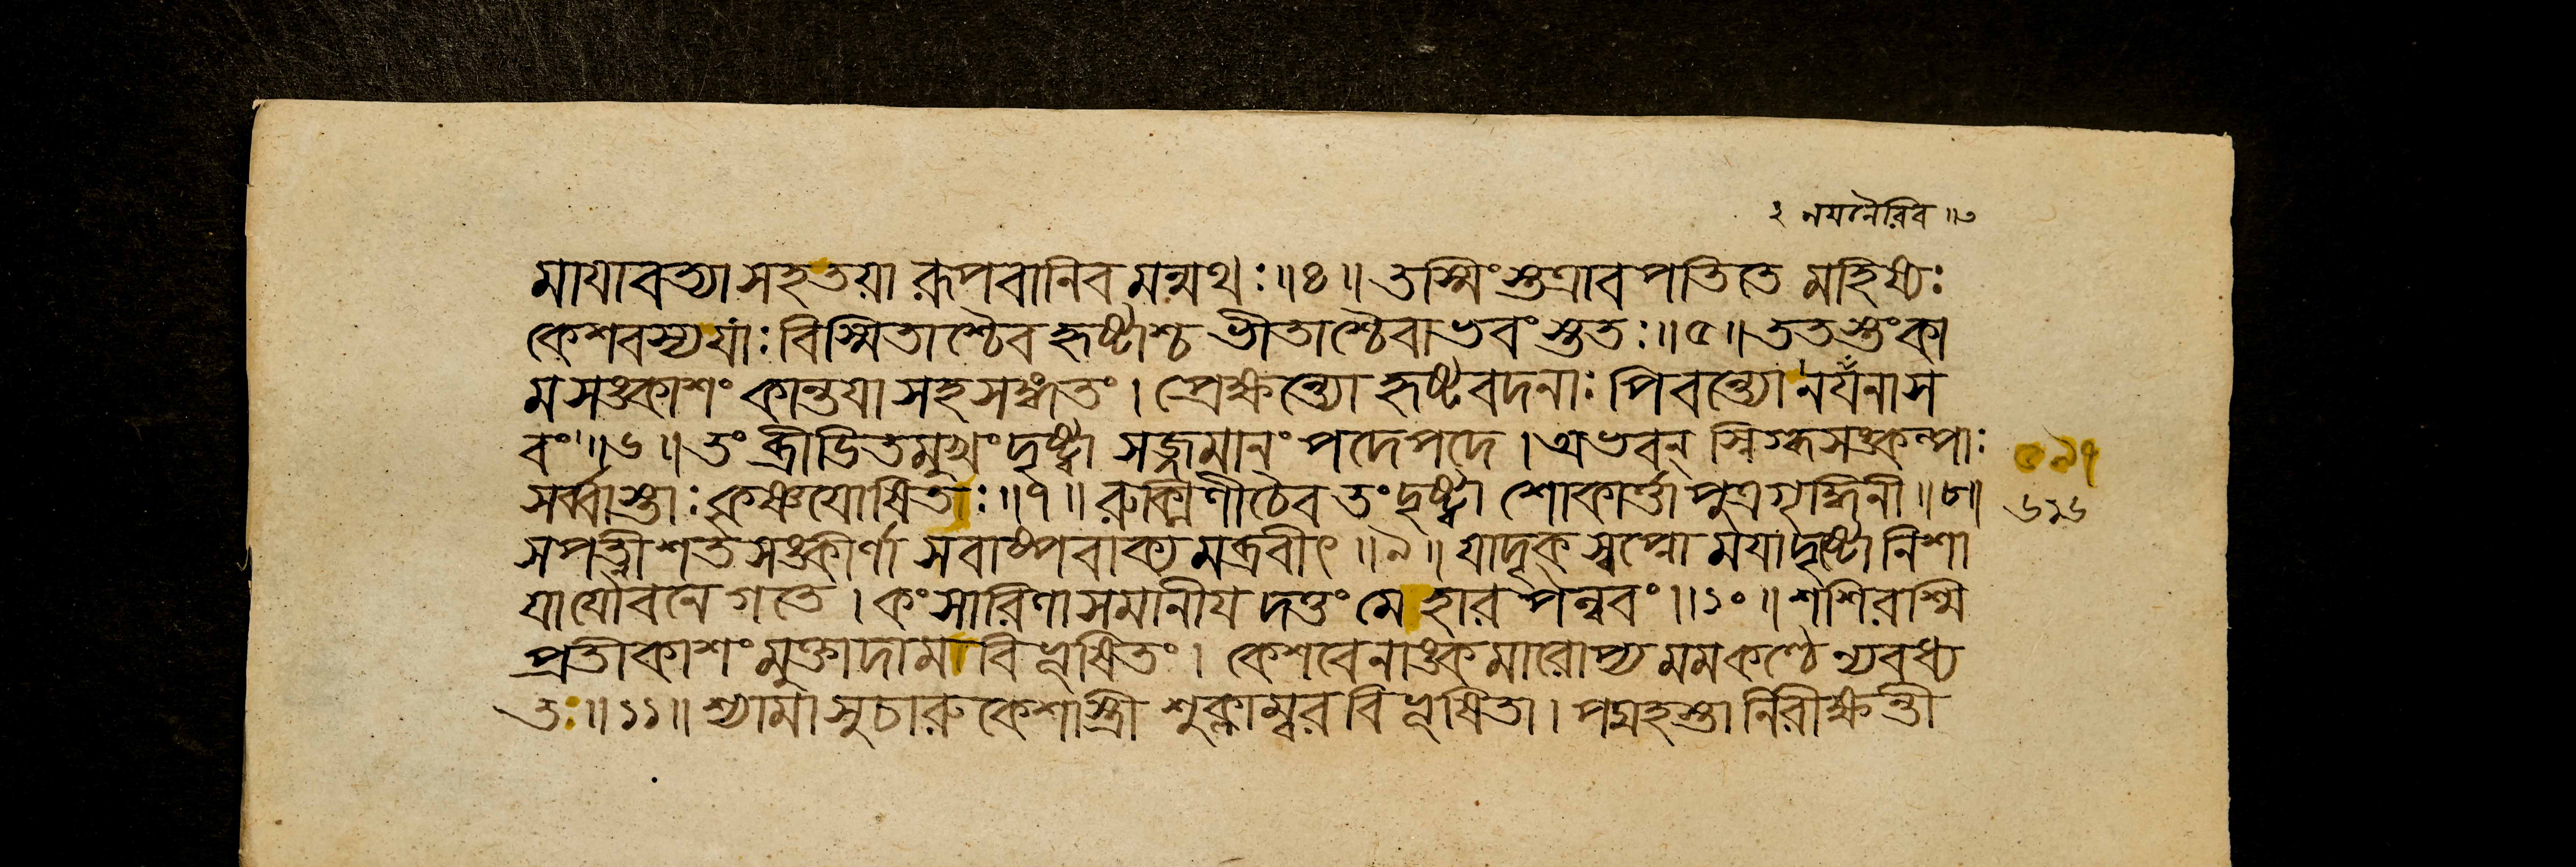 ২ নয়নৈরিব ॥৩
মায়াবত্যা সহ তয়া রূপবানিব মন্মথঃ ॥৪॥ তস্মিংস্তত্রাবপতিতে মহিষ্যঃ
কেশবস্য যাঃ বিস্মিতাশ্চৈব হৃষ্টাশ্চ ভীতাশ্চৈবাভবংস্ততঃ ॥৫॥ ততস্তং কা
মসঙ্কাশং কান্তয়া সহ সঙ্গতং । প্রেক্ষন্ত্যো হৃষ্টবদনাঃ পিবন্ত্যো নয়ঁনাস
বং ॥৬॥ তং ব্রীডিতমুখং দৃষ্ট্বা সজ্জমানং পদে পদে । অভবন্ স্নিগ্ধসঙ্কল্পাঃ
সর্ব্বাস্তাঃ কৃষ্ণযোষিতাঃ ॥৭॥ রুক্মিণী চৈব তং দৃষ্ট্বা শোকার্ত্তা পুত্রগৃদ্ধিনী ॥৮॥
সপত্নীশতসঙ্কীর্ণা সবাষ্পবাক্যমব্রবীৎ ॥৯॥ যাদৃক্ স্বপ্নো ময়া দৃষ্টো নিশা
য়া যৌবনে গতে । কংসারিণা সমানীয় দত্তং মে হারপল্লবং ॥১০॥ শশিরশ্মি
প্রতীকাশং মুক্তাদামাবিভূষিতং । কেশবেনাঙ্কমারোপ্য মম কণ্ঠে ন্যবধ্য
তঃ ॥১১॥ শ্যামা সুচারুকেশা স্ত্রী শুক্লাম্বরবিভূষিতা । পদ্মহস্তা নিরীক্ষন্তী
৬১৬